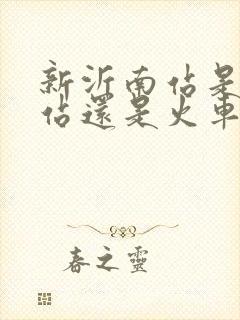 新沂南站是
站還是火車
春之靈